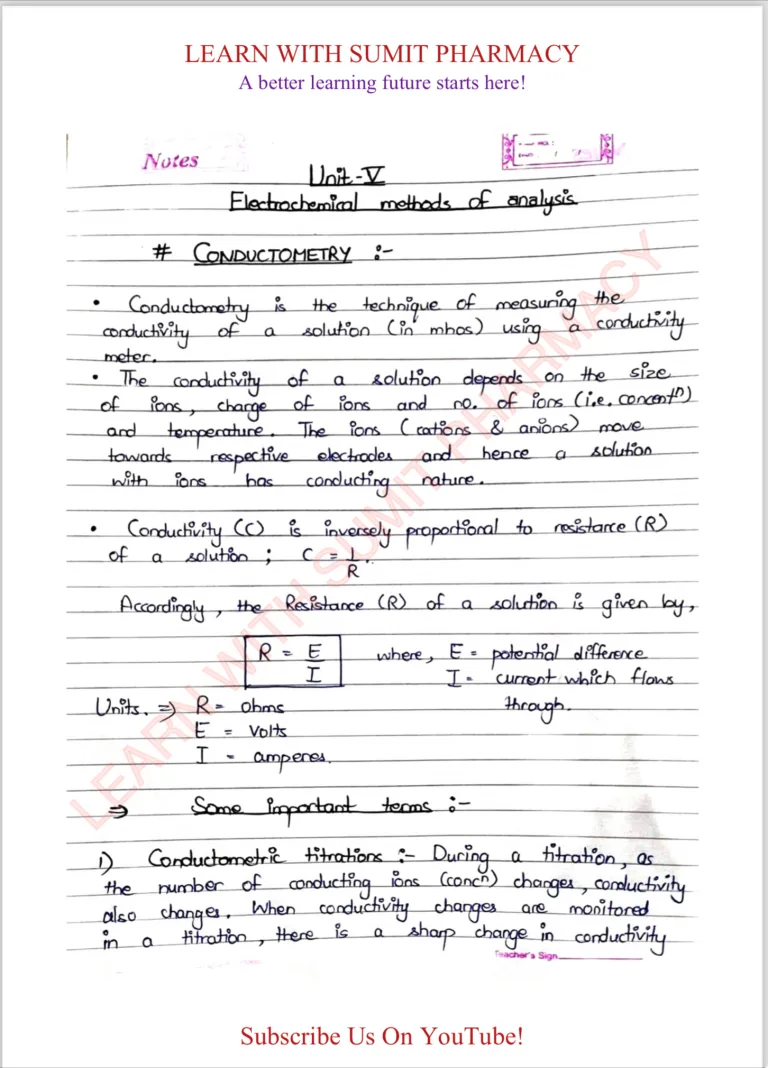 LEARN WITH SUMIT PHARMACY
A better learning future starts here!
Notes
Unit-V
Electrochemical methods of analysis
# CONDUCTOMETRY :-
• Conductometry is the technique of measuring the
conductivity of a solution (in mhos) using a conductivity
meter.
• The conductivity of a solution depends on the size
of ions, charge of ions and no. of ions (i.e. concentⁿ)
and temperature. The ions (cations & anions) move
towards respective electrodes and hence a solution
with ions has conducting nature.
• Conductivity (C) is inversely proportional to resistance (R)
of a solution ; C = 1/R.
Accordingly, the Resistance (R) of a solution is given by,
R = E/I where, E = potential difference
I = current which flows
Units. ⇒ R = ohms through.
E = Volts
I = amperes.
⇒ Some important terms :-
1) Conductometric titrations :- During a titration, as
the number of conducting ions (concⁿ) changes, conductivity
also changes. When conductivity changes are monitored
in a titration, there is a sharp change in conductivity
Teacher's Sign
LEARN WITH SUMIT PHARMACY
Subscribe Us On YouTube!